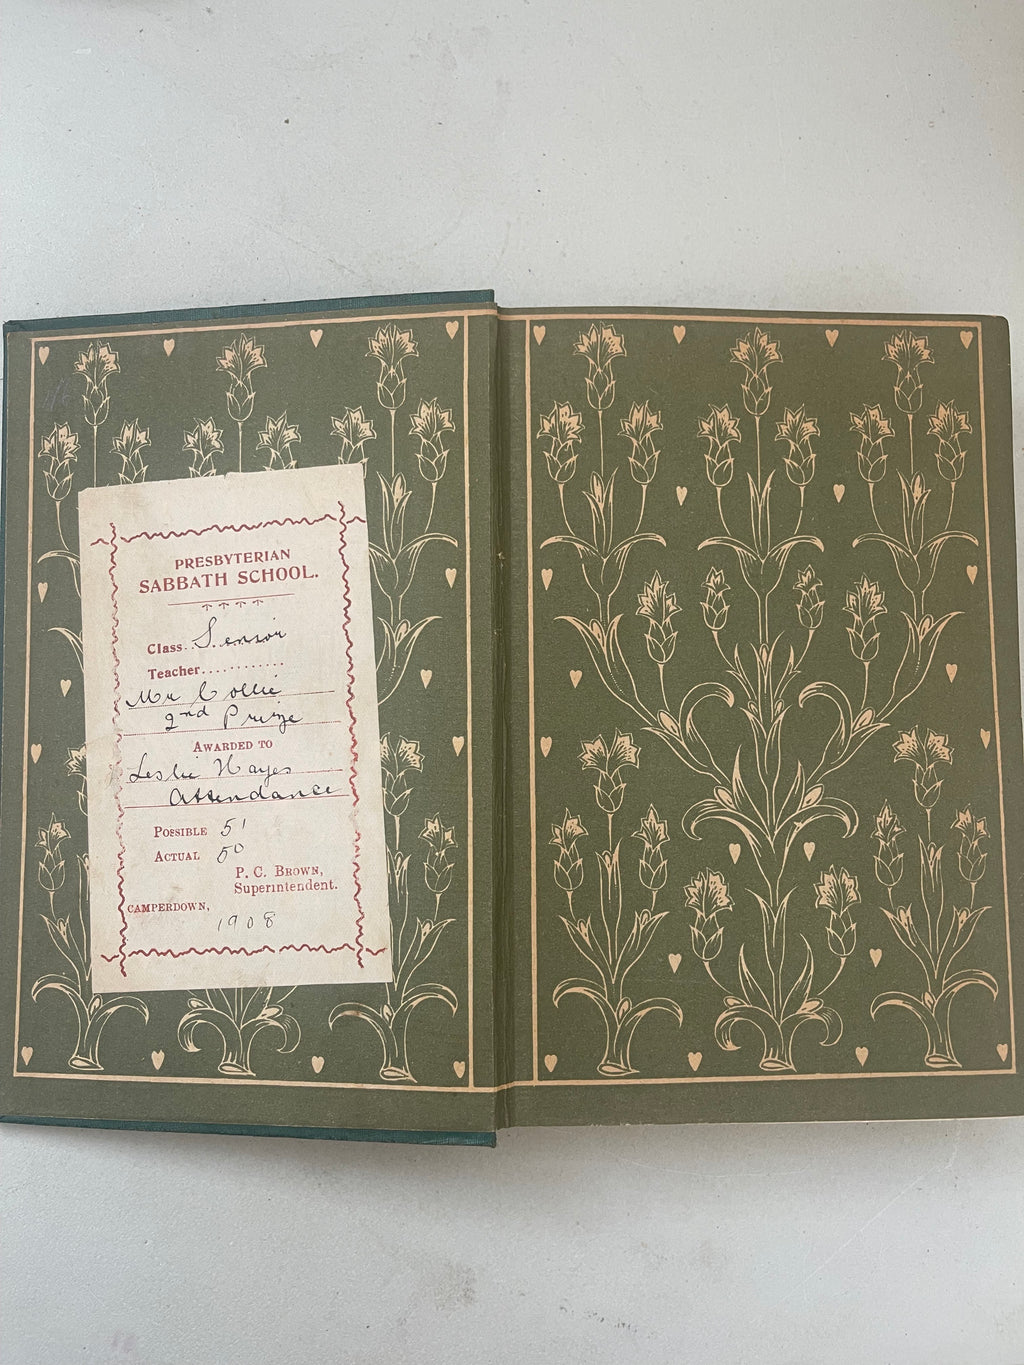 PRESBYTERIAN
SABBATH SCHOOL.
Class..Senior
Teacher............
Mr Collie
2nd Prize
AWARDED TO
Leslie Hayes
Attendance
POSSIBLE 51
ACTUAL 50
P. C. BROWN,
Superintendent.
CAMPERDOWN,
1908